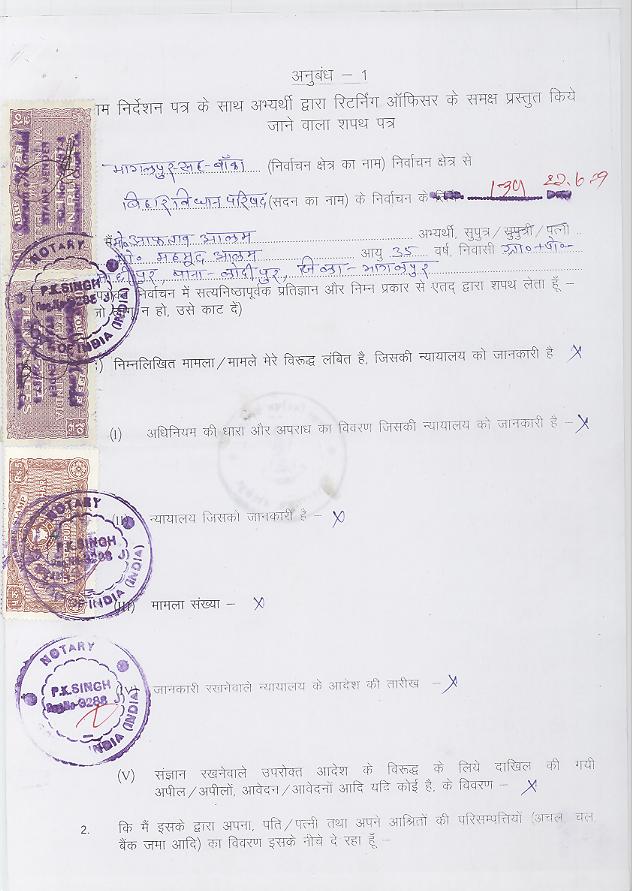 अनुबंध – 1
निर्देशन पत्र के साथ अभ्यर्थी द्वारा रिटर्निंग ऑफिसर के समक्ष प्रस्तुत किये
जाने वाला शपथ पत्र
भागलपुर सह-बाँका (निर्वाचन क्षेत्र का नाम) निर्वाचन क्षेत्र से
बिहार विधान परिषद (सदन का नाम) के निर्वाचन के
मैं मो० आफताब आलम अभ्यर्थी, सुपुत्र/सुपुत्री/पत्नी
मो० महमूद आलम आयु 35 वर्ष, निवासी ग्रा०+पो०-
पुर, थाना- लोदीपुर, जिला- भागलपुर
निर्वाचन में सत्यनिष्ठापूर्वक प्रतिज्ञान और निम्न प्रकार से एतद द्वारा शपथ लेता हूँ –
हो, उसे काट दें)
निम्नलिखित मामला/मामले मेरे विरूद्ध लंबित है, जिसकी न्यायालय को जानकारी है X
(I) अधिनियम की धारा और अपराध का विवरण जिसकी न्यायालय को जानकारी है – X
न्यायालय जिसको जानकारी है – X
(III) मामला संख्या – X
जानकारी रखनेवाले न्यायालय के आदेश की तारीख – X
(V) संज्ञान रखनेवाले उपरोक्त आदेश के विरूद्ध के लिये दाखिल की गयी
अपील/अपीलों, आवेदन/आवेदनों आदि यदि कोई है, के विवरण – X
2. कि मैं इसके द्वारा अपना, पति/पत्नी तथा अपने आश्रितों की परिसम्पत्तियों (अचल, चल,
बैंक जमा आदि) का विवरण इसके नीचे दे रहा हूँ –
NOTARY
P.K.SINGH
OF INDIA (INDIA)
NOTARY
P.K.SINGH
9288
OF INDIA (INDIA)
NOTARY
P.K.SINGH
Reg.No-9288
INDIA (INDIA)